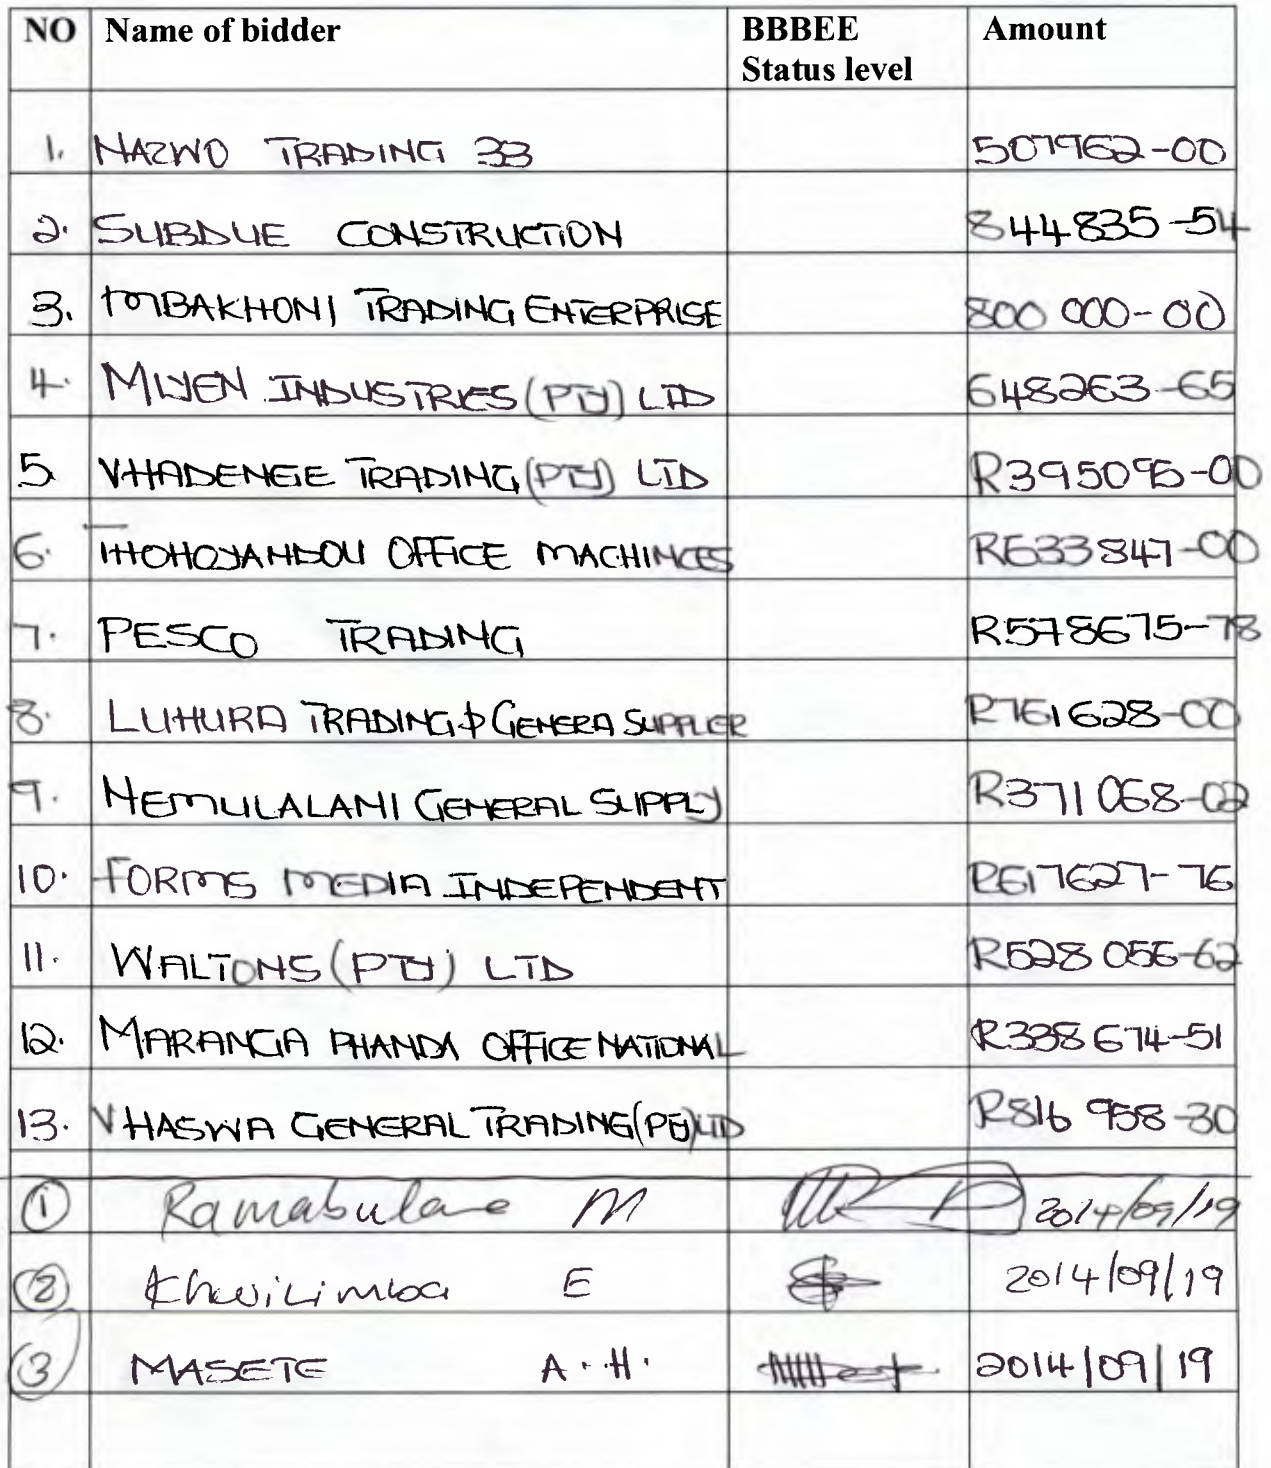 NO Name of bidder BBBEE Status level Amount
1. NAZWO TRADING 33 507962-00
2. SUBDUE CONSTRUCTION 844835-54
3. MBAKHONI TRADING ENTERPRISE 800 000-00
4. MLYEN INDUSTRIES (PTY) LTD 648263-65
5. VHADENGE TRADING (PTY) LTD R395095-00
6. THOHOYANDOU OFFICE MACHINCES R633847-00
7. PESCO TRADING R578675-78
8. LUHURA TRADING & GENERA SUPPLIER R761628-00
9. NEMULALANI GENERAL SUPPLY R371068-02
10. FORMS MEDIA INDEPENDENT R617627-76
11. WALTONS (PTY) LTD R528 056-62
12. MARANGA PHANDA OFFICE NATIONAL R338674-51
13. VHASWA GENERAL TRADING (PTY) LTD R816 958-30
1 Ramabulane M 2014/09/19
2 Khwilimba E 2014/09/19
3 MASETE A.H. 2014/09/19